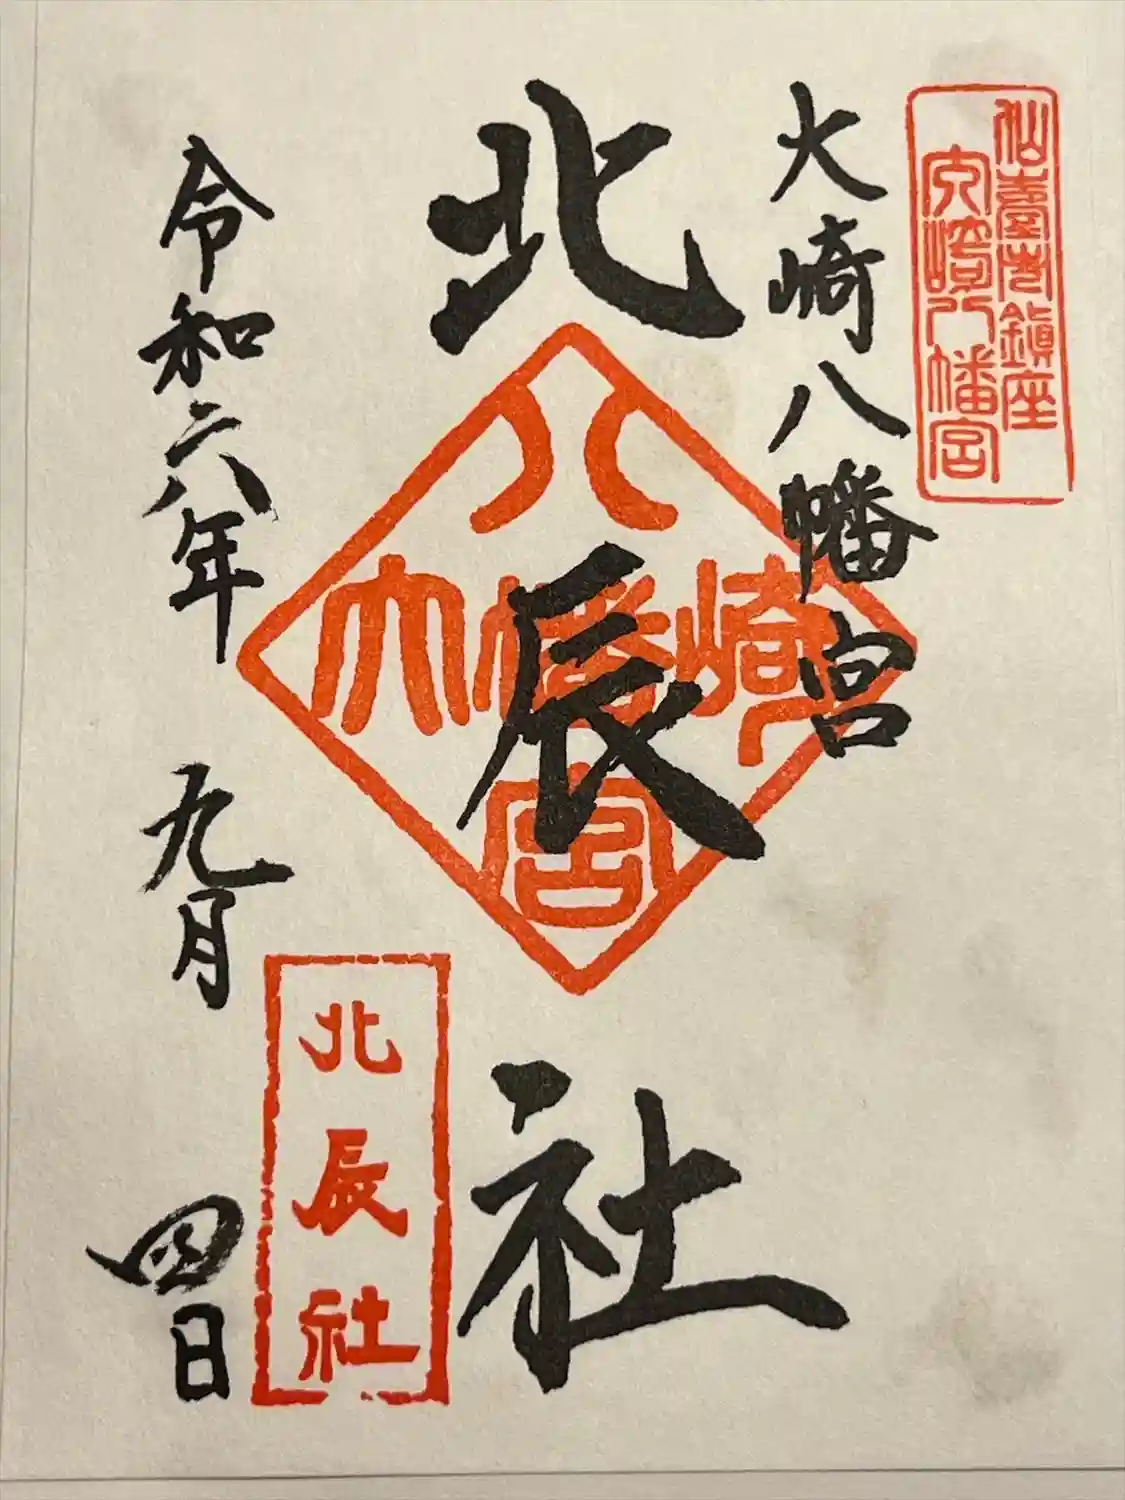 仙臺市鎮座
大崎八幡宮
大崎八幡宮
北辰社
八
大幡崎
宮
北辰社
令和六年 九月 四日